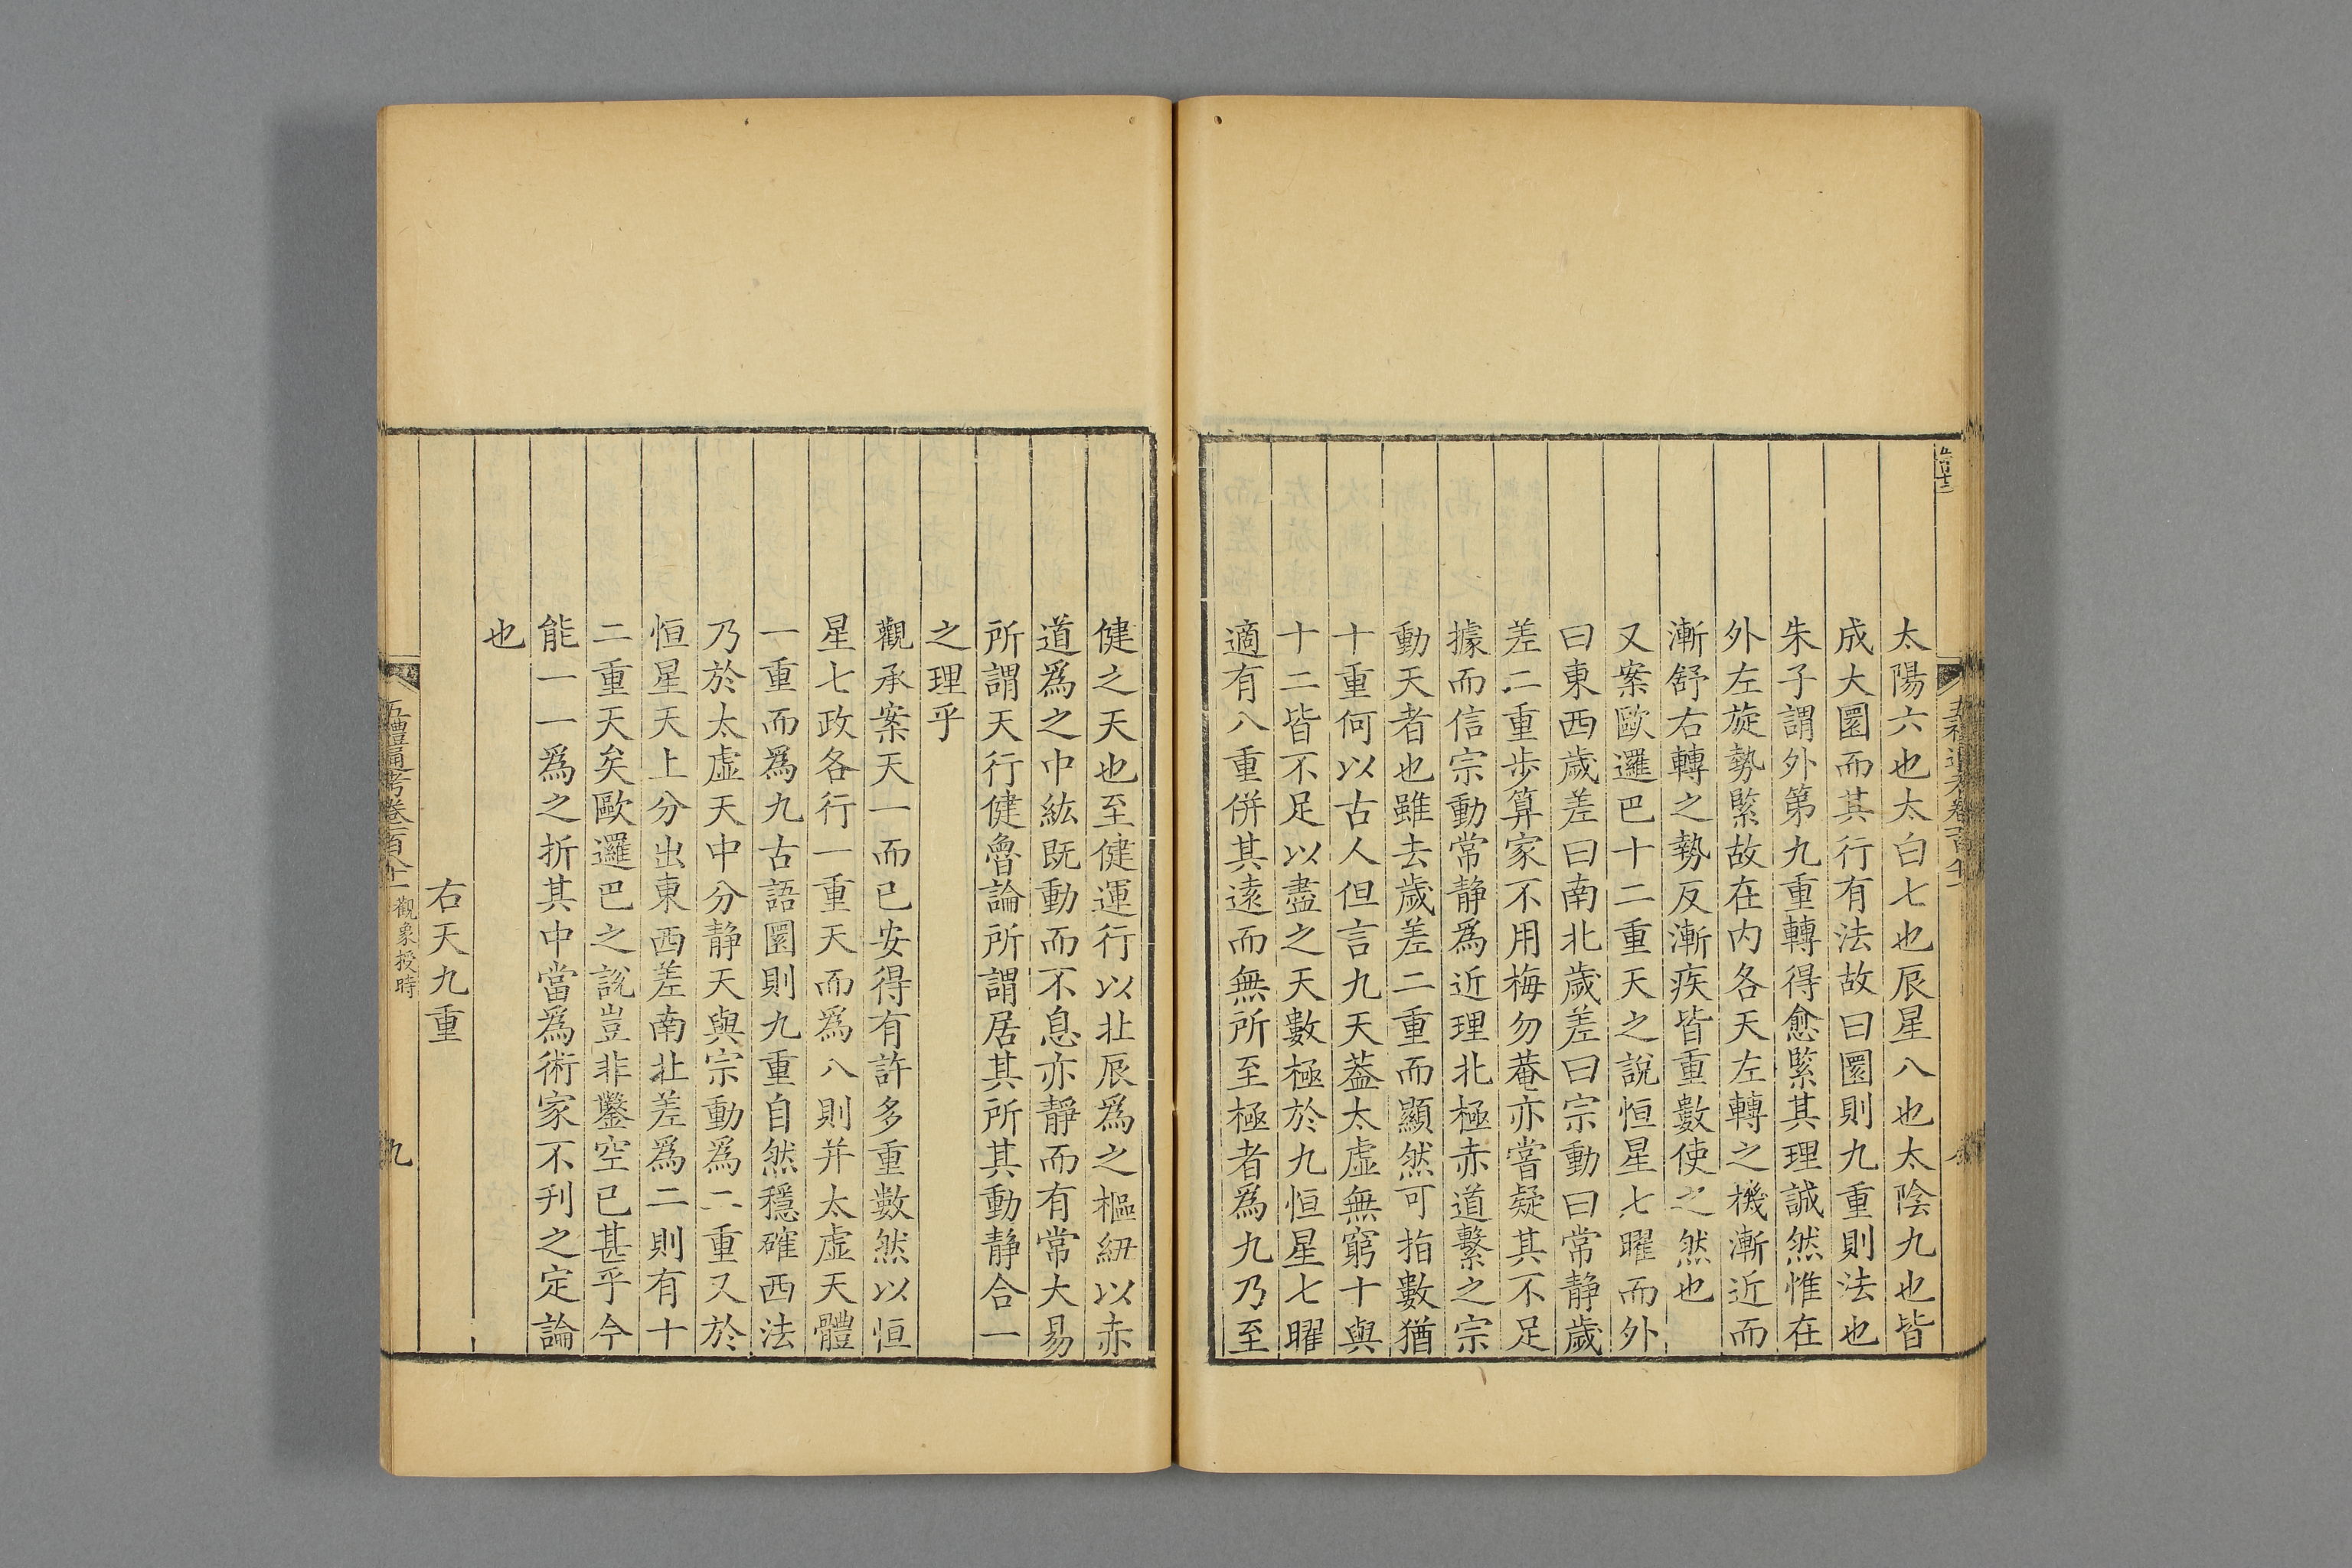 太陽六也太白七也辰星八也太陰九也皆
成大圜而其行有法故曰圜則九重則法也
朱子謂外第九重轉得愈緊其理誠然惟在
外左旋勢緊故在内各天左轉之機漸近而
漸舒右轉之勢反漸疾皆重數使之然也
又案歐邏巴十二重天之說恒星七曜而外
曰東西歲差曰南北歲差曰宗動曰常静歲
差二重步算家不用梅勿菴亦嘗疑其不足
據而信宗動常静爲近理北極赤道繫之宗
動天者也雖去歲差二重而顯然可指數猶
十重何以古人但言九天葢太虛無窮十與
十二皆不足以盡之天數極於九恒星七曜
適有八重併其遠而無所至極者爲九乃至
健之天也至健運行以北辰爲之樞紐以赤
道爲之中紘既動而不息亦靜而有常大易
所謂天行健魯論所謂居其所其動静合一
之理乎
觀承案天一而已安得有許多重數然以恒
星七政各行一重天而爲八則并太虛天體
一重而爲九古語圜則九重自然穩確西法
乃於太虛天中分静天與宗動爲二重又於
恒星天上分出東西差南北差爲二則有十
二重天矣歐邏巴之說豈非鑿空已甚乎今
能一一爲之折其中當爲術家不刋之定論
也
右天九重
五禮通考卷一百八十一 觀象授時
九